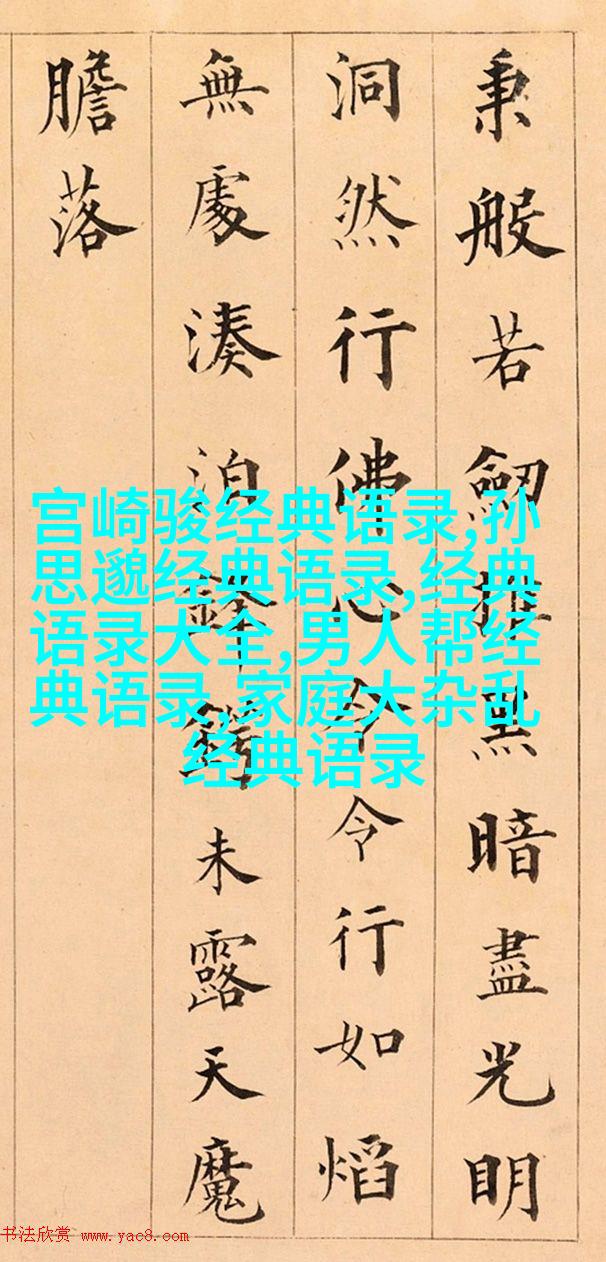 秉般若劒推黑暗盡光明
洞然行佛心令令行如熖
無處湊泊鋒鍔未露天魔
膽落
宫崎骏经典语录,孙
思邈经典语录,经典
语录大全,男人帮经
典语录,家庭大杂乱
经典语录
书法欣赏 www.yac8.com